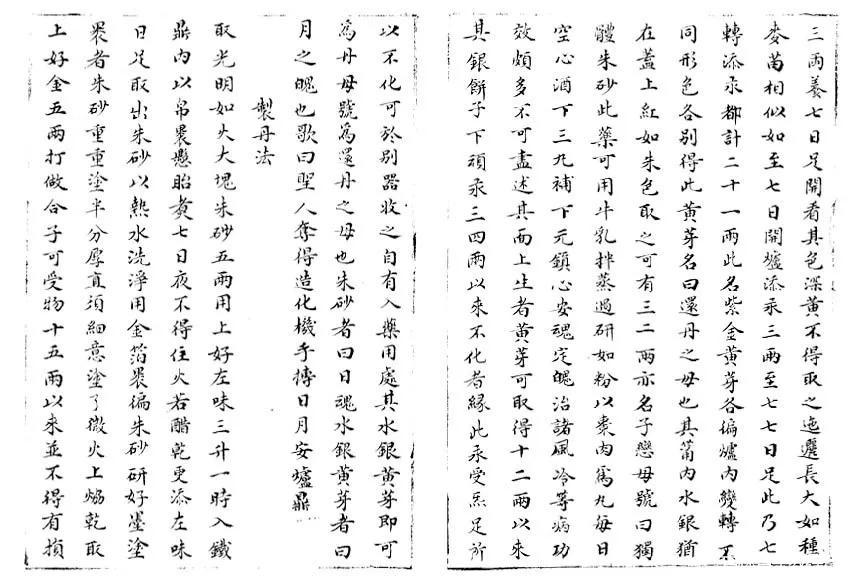 三兩養七日足開看其色深黃不得取之迤邐長大如種
麥苗相似如至七日開爐添汞三兩至七七日足此乃七
轉添汞都計二十一兩此名紫金黃芽各徧爐內變轉不
同形色各別得此黃芽名曰還丹之母也其莆內水銀猶
在蓋上紅如朱色取之可有三二兩亦名子戀母號曰獨
體朱砂此藥可用牛乳拌蒸過研如粉以棗肉為丸每日
空心酒下三九補下元鎮心安魂定魄治諸風冷等病功
效頗多不可盡述其面上生者黃芽可取得十二兩以來
其銀餅子下頑汞三四兩以來不化者緣此汞受炁足所
以不化可於別器收之自有入藥用處其水銀黃芽即可
為丹母號為還丹之母也朱砂者曰日魂水銀黃芽者曰
月之魄也歌曰聖人奪得造化機手摶日月安爐鼎
製丹法
取光明如火大塊朱砂五兩用上好左味三升一時入鐵
鼎內以帛裹懸胎煮七日夜不得住火若醋乾更添左味
日足取出朱砂以熱水洗淨用金箔裹徧朱砂研好墨塗
裹者朱砂重重塗半分厚直須細意塗了微火上煿乾取
上好金五兩打做合子可受物十五兩以來並不得有損